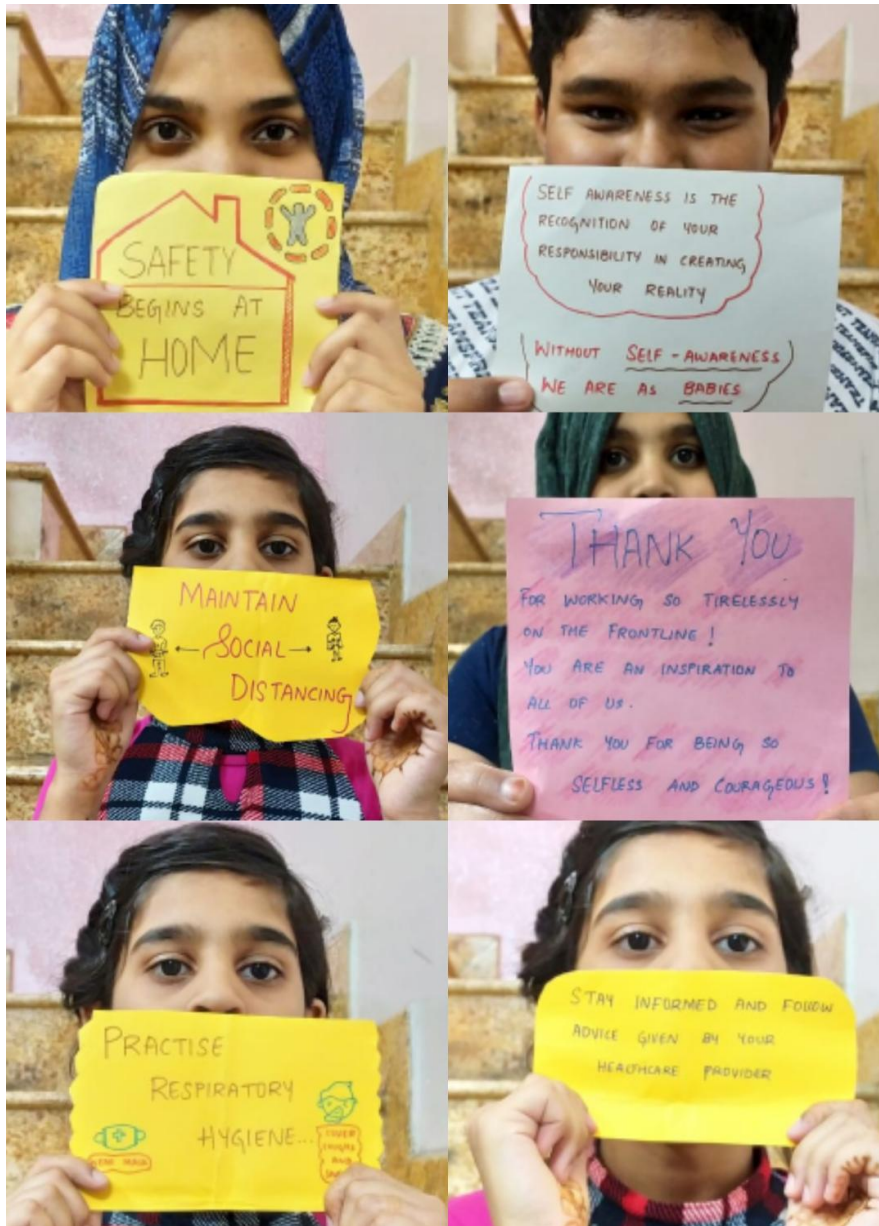 SAFETY
BEGINS AT
HOME
SELF AWARENESS IS THE
RECOGNITION OF YOUR
RESPONSIBILITY IN CREATING
YOUR REALITY
WITHOUT SELF-AWARENESS
WE ARE AS BABIES
MAINTAIN
SOCIAL
DISTANCING
THANK YOU
FOR WORKING SO TIRELESSLY
ON THE FRONTLINE!
YOU ARE AN INSPIRATION TO
ALL OF US.
THANK YOU FOR BEING SO
SELFLESS AND COURAGEOUS!
PRACTISE
RESPIRATORY
HYGIENE...
MASK
COVER
COUGHS
AND
STAY INFORMED AND FOLLOW
ADVICE GIVEN BY YOUR
HEALTHCARE PROVIDER